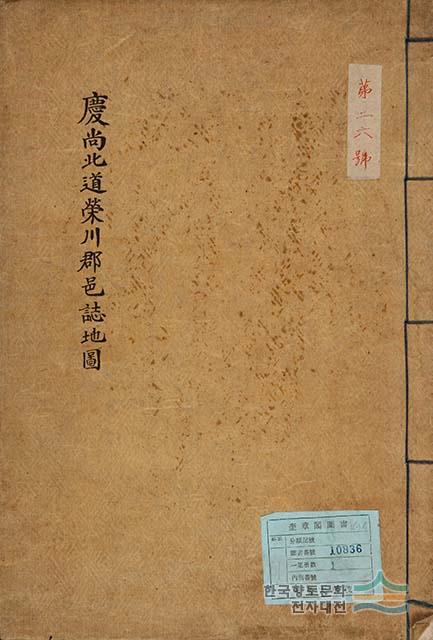 慶尚北道榮川郡邑誌地圖
第二六號
奎章閣圖書
分類記號
圖書番號 10836
一連冊數 1
內冊番號
한국향토문화
전자대전